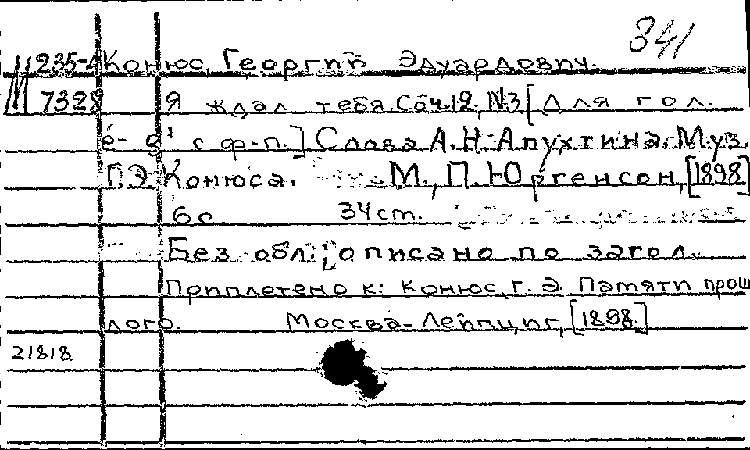 341
М 235-4 Конюс, Георгий Эдуардович.
7328 Я ждал тебя. Соч.12, №3 [Для гол.
e-g¹ с ф-п.] Слова А.Н. Апухтина. Муз.
Г.Э. Конюса. М., П. Юргенсон, [1898]
6 с. 34 ст.
Без обл.; описано по загол.
Приплетено к: Конюс, Г. Э. Памяти прош
лого. Москва-Лейпциг, [1898.]
21818